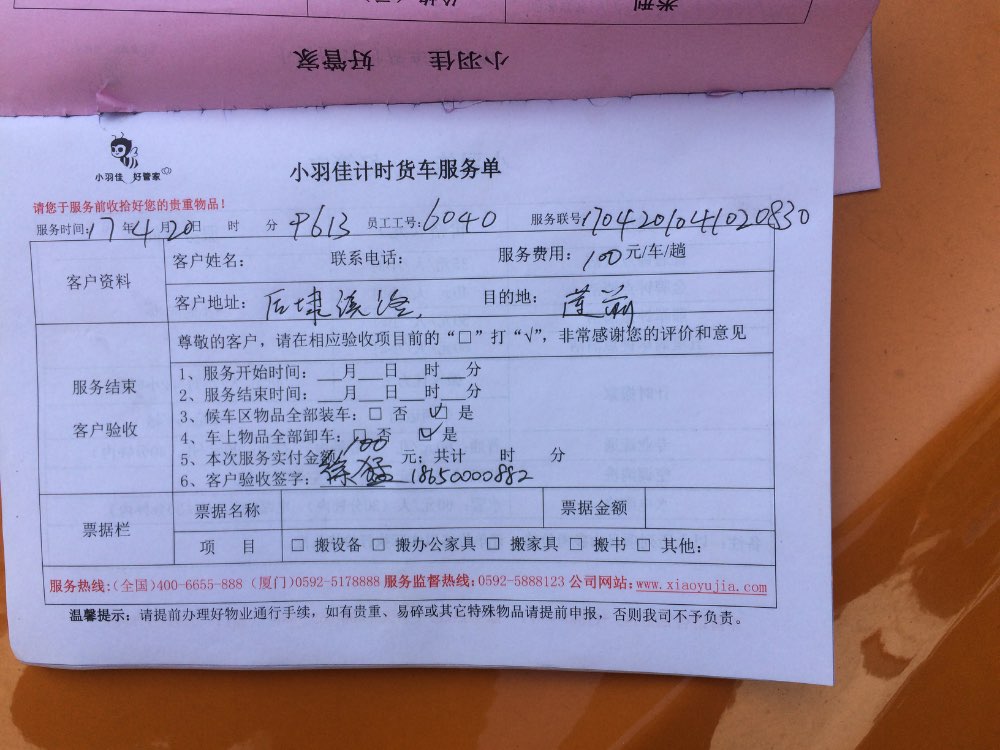 类别
价格(元)
小羽佳 好管家
小羽佳 好管家
小羽佳计时货车服务单
请您于服务前收拾好您的贵重物品!
服务时间:17年4月20日 时 分 9613 员工工号:6040 服务联号1704201041020830
客户资料
客户姓名: 联系电话: 服务费用:100元/车/趟
客户地址:后埭溪路 目的地:莲前
服务结束
客户验收
尊敬的客户,请在相应验收项目前的“□”打“√”,非常感谢您的评价和意见
1、服务开始时间:___月___日___时___分
2、服务结束时间:___月___日___时___分
3、候车区物品全部装车:□ 否 ☑ 是
4、车上物品全部卸车:□ 否 ☑ 是
5、本次服务实付金额100元;共计 时 分
6、客户验收签字:徐猛 18650000882
票据栏
票据名称 票据金额
项 目 □ 搬设备 □ 搬办公家具 □ 搬家具 □ 搬书 □ 其他:
服务热线:(全国)400-6655-888 (厦门)0592-5178888 服务监督热线:0592-5888123 公司网站:www.xiaoyujia.com
温馨提示:请提前办理好物业通行手续,如有贵重、易碎或其它特殊物品请提前申报,否则我司不予负责。